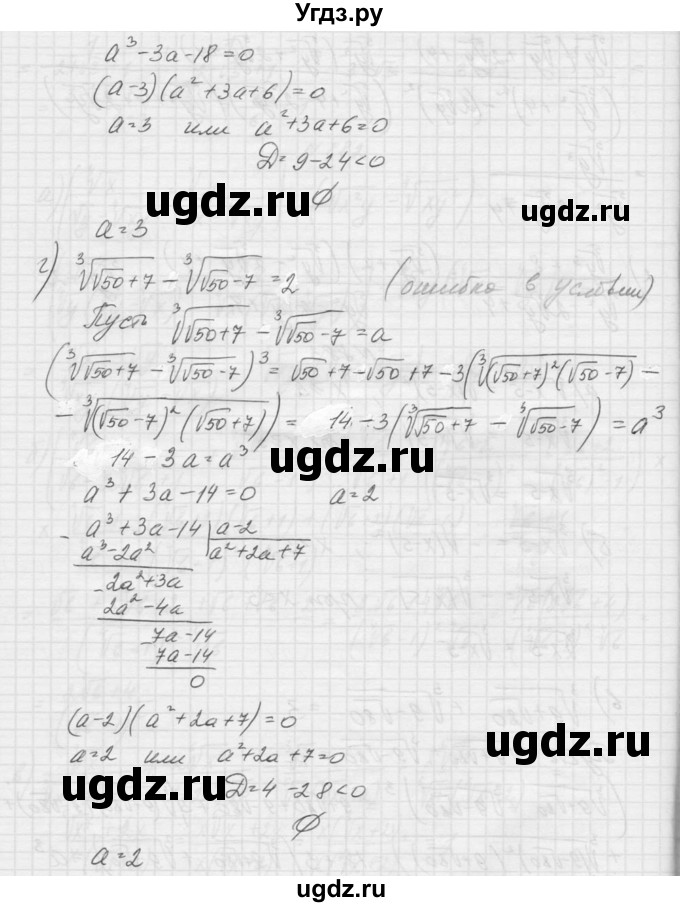 Угдз.ру
a³ - 3a - 18 = 0
(a-3)(a² + 3a + 6) = 0
a = 3 или a² + 3a + 6 = 0
Д = 9 - 24 < 0
∅
ugdz.ru
ugdz.ru
a = 3
г) ∛(√50 + 7) - ∛(√50 - 7) = 2 (ошибка в условии)
Пусть ∛(√50 + 7) - ∛(√50 - 7) = a
(∛(√50 + 7) - ∛(√50 - 7))³ = √50 + 7 - √50 + 7 - 3(∛((√50 + 7)²(√50 - 7)) -
- ∛((√50 - 7)²(√50 + 7))) = 14 - 3(∛(√50 + 7) - ∛(√50 - 7)) = a³
14 - 3a = a³
ugdz.ru
a³ + 3a - 14 = 0 a = 2
- a³ + 3a - 14 | a - 2
a³ - 2a² | a² + 2a + 7
- 2a² + 3a
2a² - 4a
- 7a - 14
7a - 14
0
(a-2)(a² + 2a + 7) = 0
ugdz.ru
a = 2 или a² + 2a + 7 = 0
ugdz.ru
Д = 4 - 28 < 0
∅
a = 2
ugdz.ru